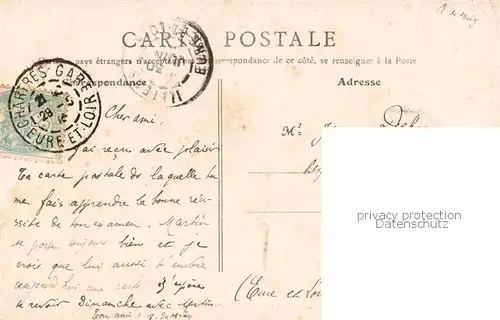 CARTE POSTALE
pays étrangers n'acceptant pas la correspondance de ce côté, se renseigner à la Poste
Correspondance
Adresse
CHARTRES-GARE
EURE-ET-LOIR
Cher ami,
J'ai reçu avec plaisir
ta carte postale de laquelle tu
me fais apprendre la bonne réus-
site de ton examen. Martin
se porte toujours bien et je
crois que lui aussi t'envoie
aujourd'hui une carte. J'espère
te avoir Dimanche avec
Ton ami
Mr
(Eure et Loi
privacy protection
Datenschutz